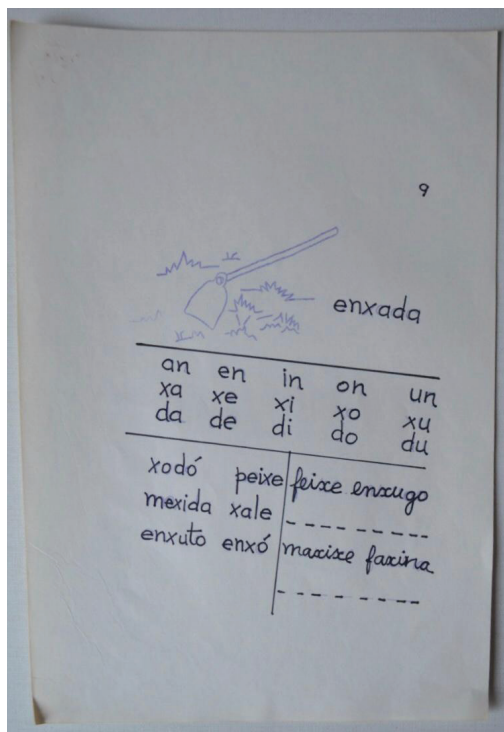 9
enxada
an en in on un
xa xe xi xo xu
da de di do du
xodó peixe
mexida xale
enxuto enxó
feixe enxugo
maxixe faxina